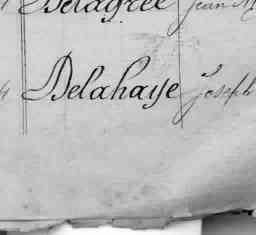 Delagrée Jean M
Delahaye Joseph